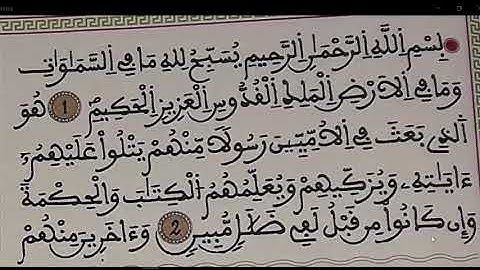 بِسْمِ اللَّهِ الرَّحْمَٰنِ الرَّحِيمِ يُسَبِّحُ لِلهِ مَا فِي السَّمَٰوَٰتِ
وَمَا فِي الْأَرْضِ الْمَلِكِ الْقُدُّوسِ الْعَزِيزِ الْحَكِيمِ 1 هُوَ
الَّذِي بَعَثَ فِي الْأُمِّيِّينَ رَسُولًا مِّنْهُمْ يَتْلُواْ عَلَيْهِمُۥٓ
ءَايَٰتِهِۦ وَيُزَكِّيهِمْ وَيُعَلِّمُهُمُ الْكِتَٰبَ وَالْحِكْمَةَ
وَإِن كَانُواْ مِن قَبْلُ لَفِي ضَلَٰلٍ مُّبِينٍ 2 وَءَاخَرِينَ مِنْهُمْ